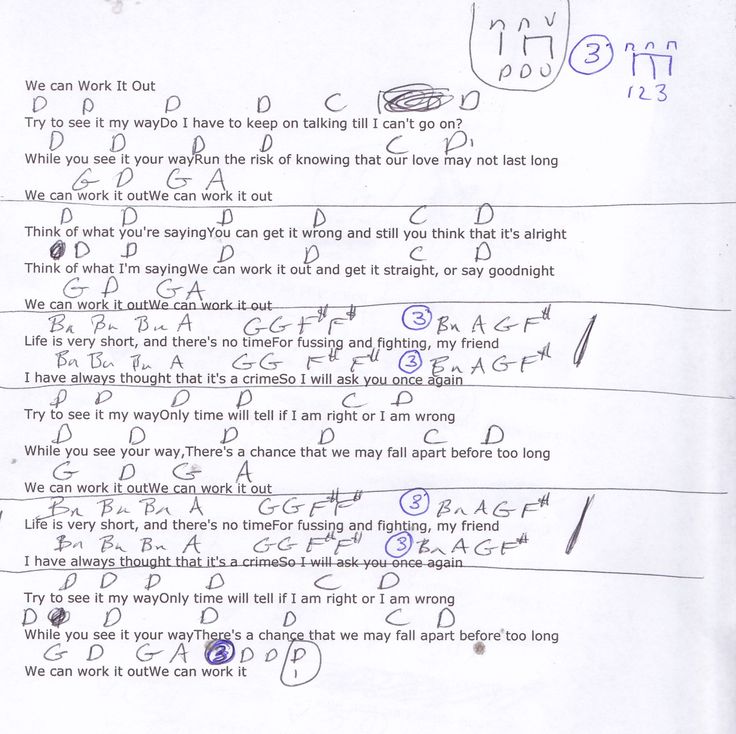 n n v
n n n
P D U
3
1 2 3
We can Work It Out
D D D D C D
Try to see it my wayDo I have to keep on talking till I can't go on?
D D D D C D
While you see it your wayRun the risk of knowing that our love may not last long
G D G A
We can work it outWe can work it out
D D D D C D
Think of what you're sayingYou can get it wrong and still you think that it's alright
D D D D C D
Think of what I'm sayingWe can work it out and get it straight, or say goodnight
G D G A
We can work it outWe can work it out
Bm Bm Bm A G G F# F# 3 Bm A G F#
Life is very short, and there's no timeFor fussing and fighting, my friend
Bm Bm Bm A G G F# F# 3 Bm A G F#
I have always thought that it's a crimeSo I will ask you once again
D D D D C D
Try to see it my wayOnly time will tell if I am right or I am wrong
D D D D C D
While you see your way,There's a chance that we may fall apart before too long
G D G A
We can work it outWe can work it out
Bm Bm Bm A G G F# F# 3 Bm A G F#
Life is very short, and there's no timeFor fussing and fighting, my friend
Bm Bm Bm A G G F# F# 3 Bm A G F#
I have always thought that it's a crimeSo I will ask you once again
D D D D C D
Try to see it my wayOnly time will tell if I am right or I am wrong
D D D D C D
While you see it your wayThere's a chance that we may fall apart before too long
G D G A 3 D D D
1
We can work it outWe can work it